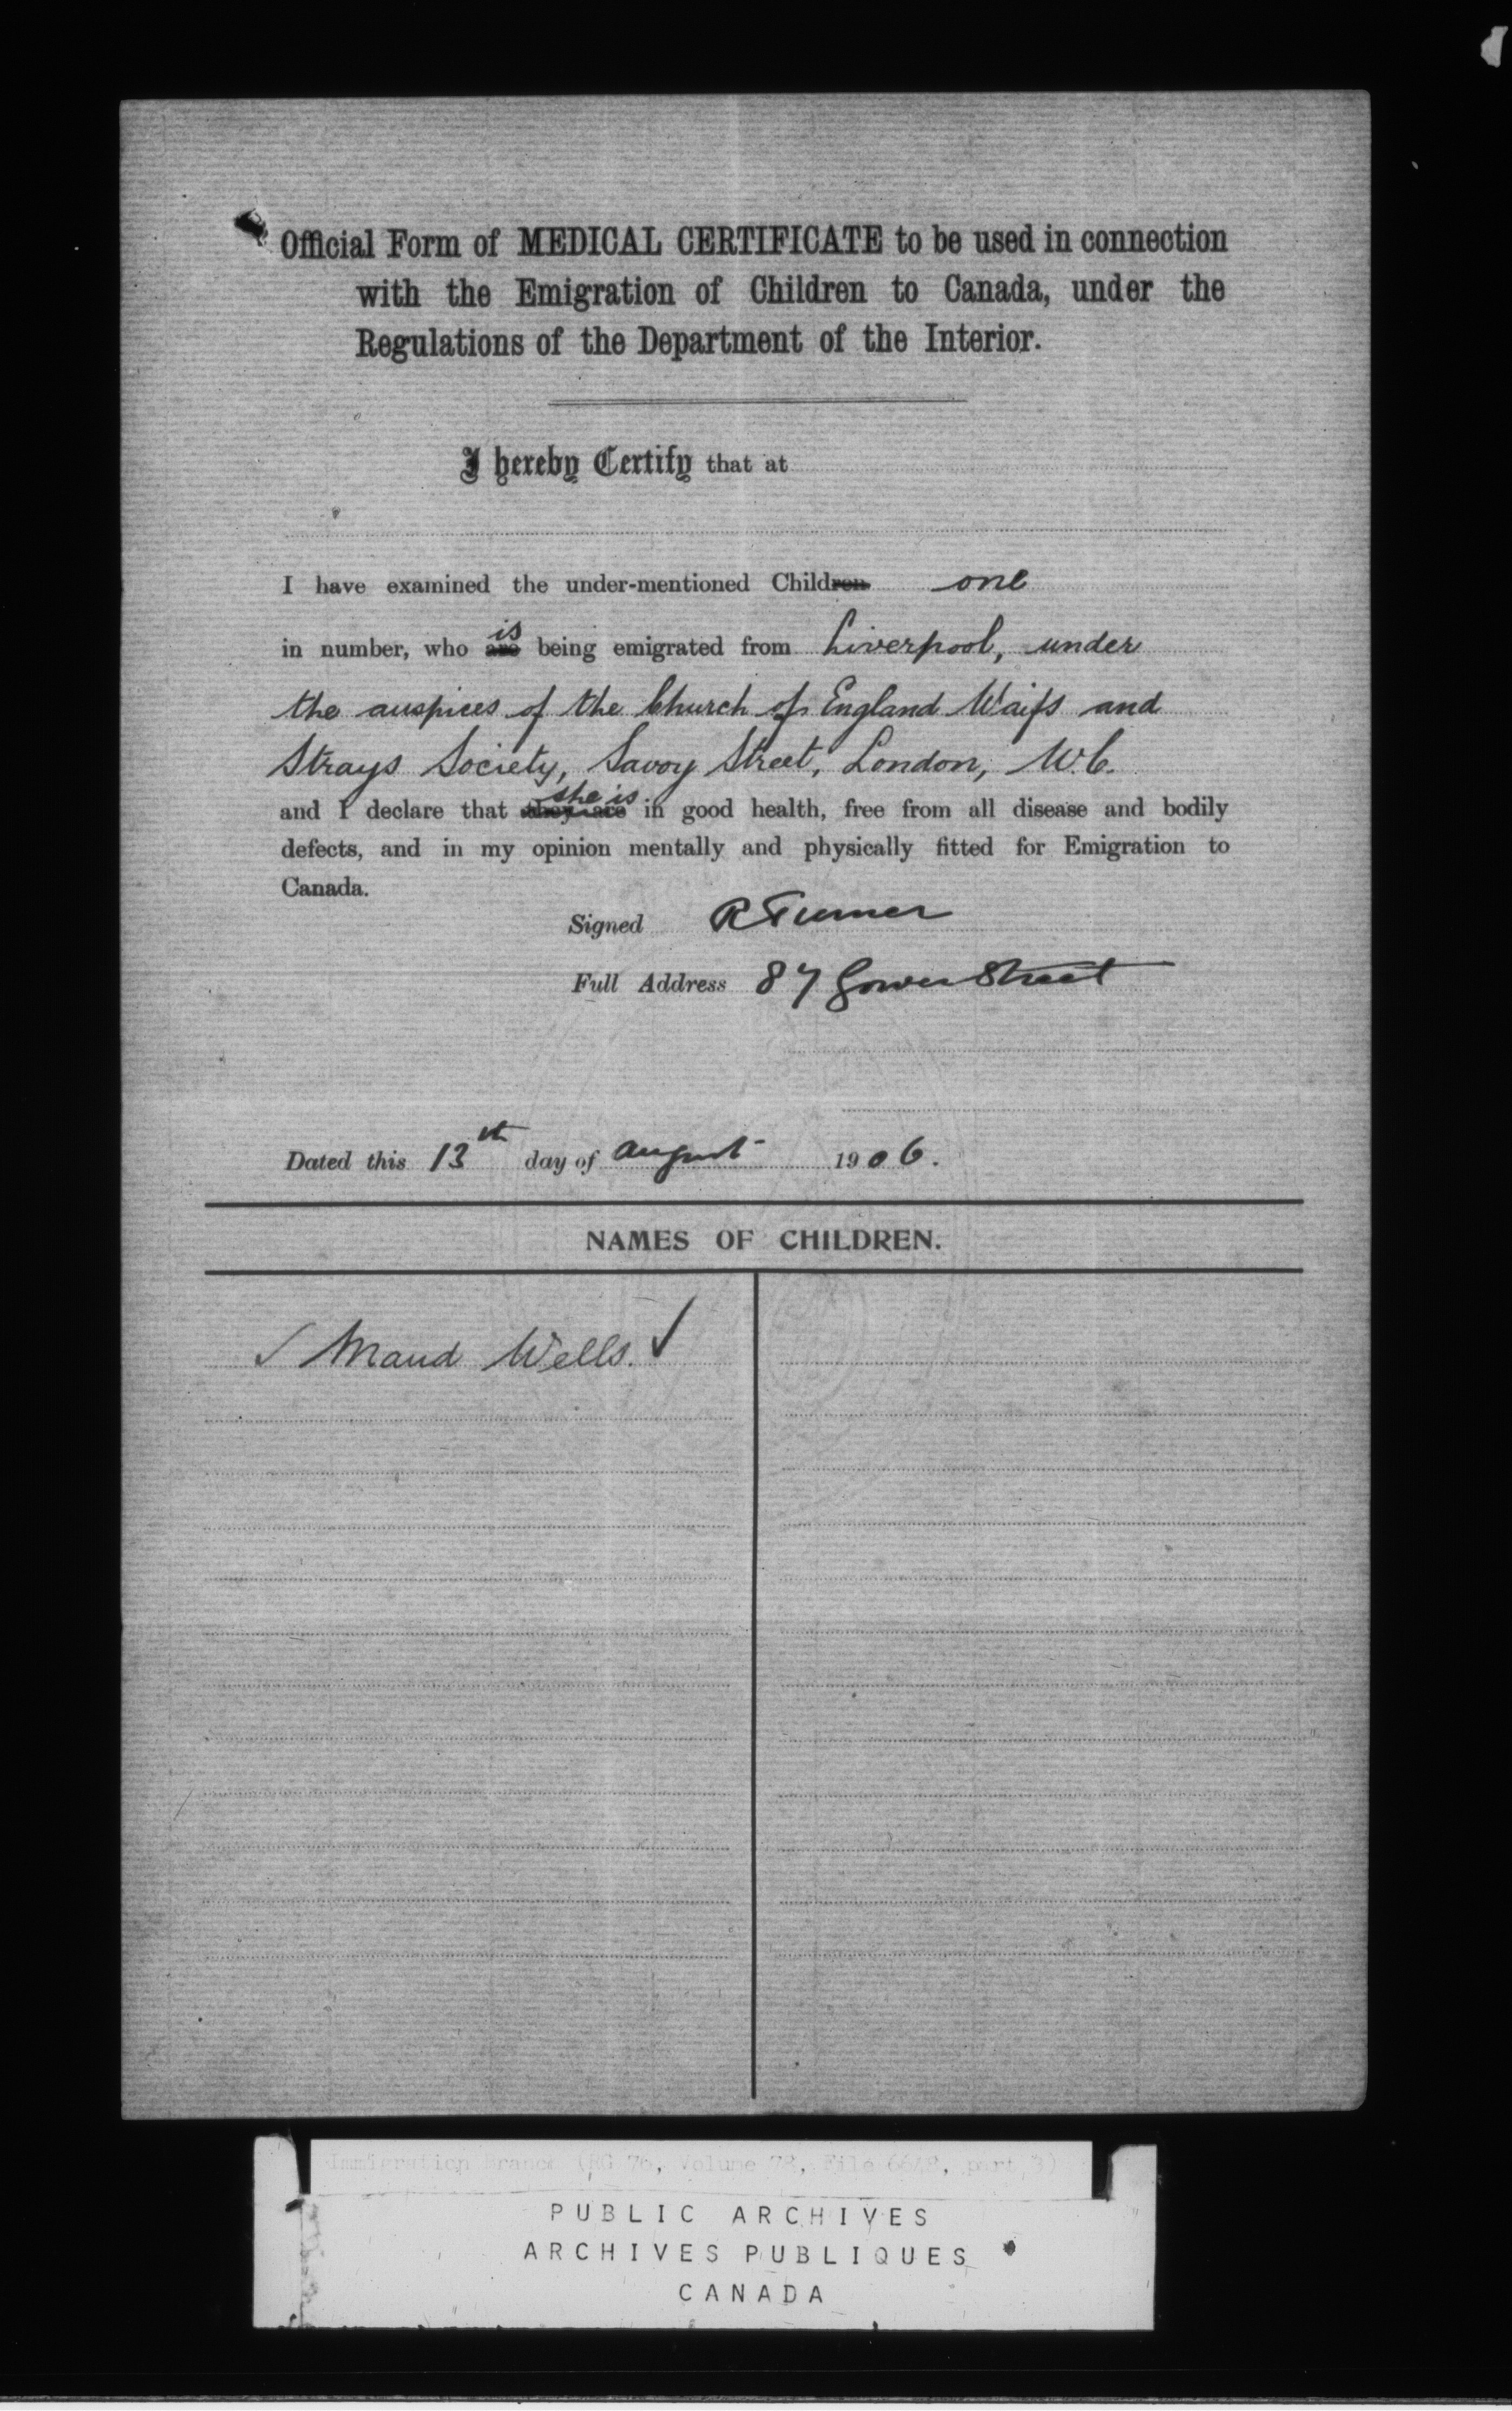 Official Form of MEDICAL CERTIFICATE to be used in connection
with the Emigration of Children to Canada, under the
Regulations of the Department of the Interior.
I hereby Certify that at
I have examined the under-mentioned Children one
is
in number, who are being emigrated from Liverpool, under
the auspices of the Church of England Waifs and
Strays Society, Savoy Street, London, W.C.
she is
and I declare that they are in good health, free from all disease and bodily
defects, and in my opinion mentally and physically fitted for Emigration to
Canada.
Signed R Turner
Full Address 87 Gower Street
Dated this 13th day of August 1906.
NAMES OF CHILDREN.
✓ Maud Wells. ✓
Immigration Branch (RG 76, Volume 78, File 6648, part 3)
PUBLIC ARCHIVES
ARCHIVES PUBLIQUES
CANADA